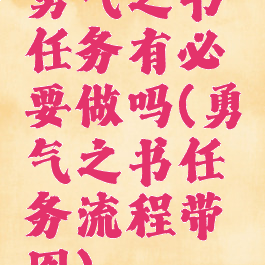 勇气之书
任务有必
要做吗(勇
气之书任
务流程带
图)